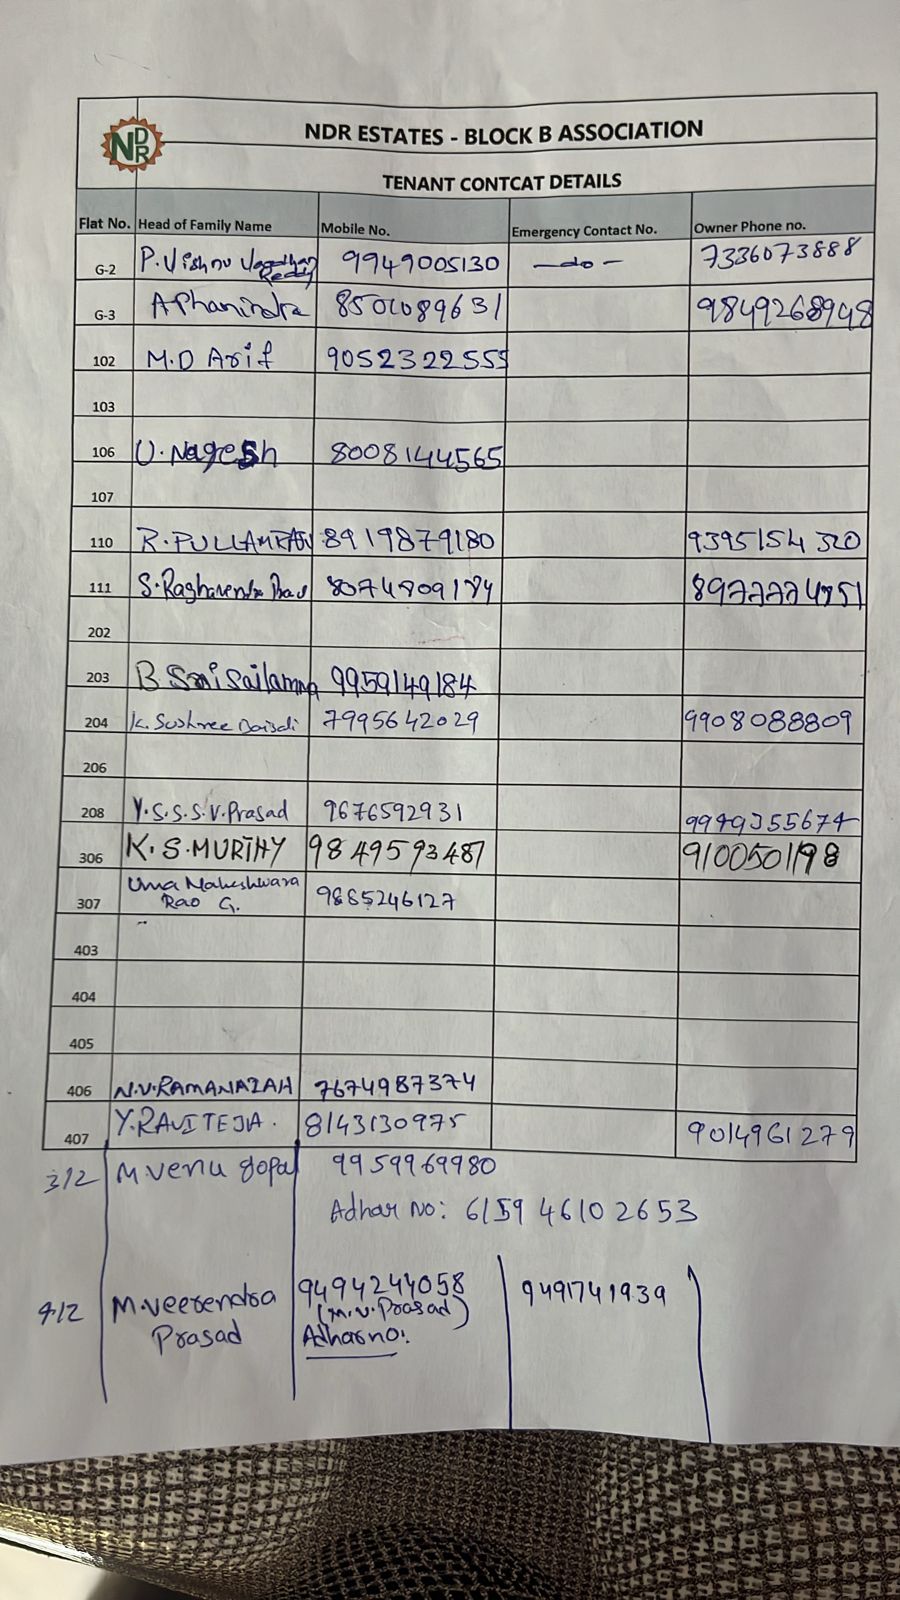 NDR
NDR ESTATES - BLOCK B ASSOCIATION
TENANT CONTCAT DETAILS
Flat No. Head of Family Name Mobile No. Emergency Contact No. Owner Phone no.
G-2 P. Vishnu Vardhan Reddy 9949005130 —do— 7336073888
G-3 A Phanindra 8501089631 9849268948
102 M.D Arif 9052322555
103
106 U. Nagesh 8008144565
107
110 R. PULLAMRAJU 8919879180 9395154320
111 S. Raghavendra 8074809184
202
203 B Sai 9959149184
204 K. Sushree 7995642029 9908088809
206
208 Y.S.S.S.V. Prasad 9676592931 9949355674
306 K. S. MURTHY 9849593487 9100501198
307 Uma Maheshwara
Rao G. 9885246127
403
404
405
406 N.V. RAMANAIAH 7674987374
407 Y. RAVITEJA. 8143130975 9014961279
312 M. Venu gopal 9959969980
Adhar No: 6159 4610 2653
412 M. veerendra 9494244058 9491741939
Prasad (M.V. Prasad)
Adhar no: